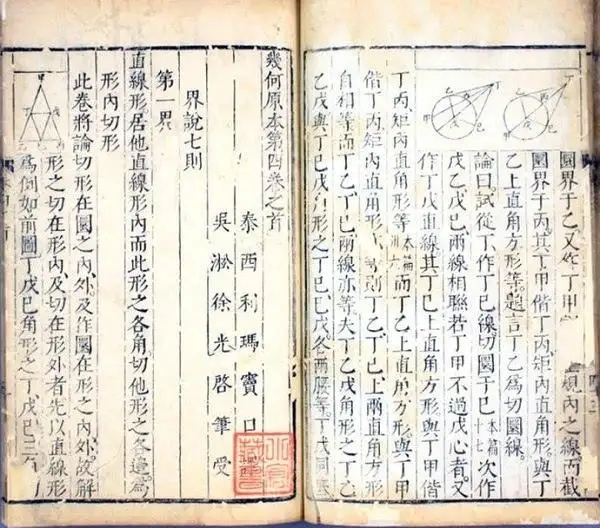 圜界于乙又作丁甲規內之線而截
圜界于丙其丁甲偕丁丙矩內直角形與丁
乙上直角方形等題言丁乙為切圜線
論曰試從丁作丁己線切圜于己本篇十七次作
戊乙戊己兩線相聯若丁甲不過戊心者又
作丁戊直線其丁己上直角方形與丁甲偕
丁丙矩內直角形等本篇卅六而丁乙上直角方形與丁甲
偕丁丙矩內直角形等則丁乙丁己上兩直角方形
自相等而丁乙丁己兩線亦等夫丁乙戊角形之丁
乙戊與丁己戊角形之丁己己戊各兩腰等丁戊同
幾何原本第四卷之首
泰西利瑪竇口
吳淞徐光啓筆受
界說七則
第一界
直線形居他直線形內而此形之各角切他形之各邊為
形內切形
此卷將論切形在圜之內外及作圜在形之內外故解
形之切在形內及切在形外者先以直線形
為例如前圖丁戊己角形之丁戊己三角